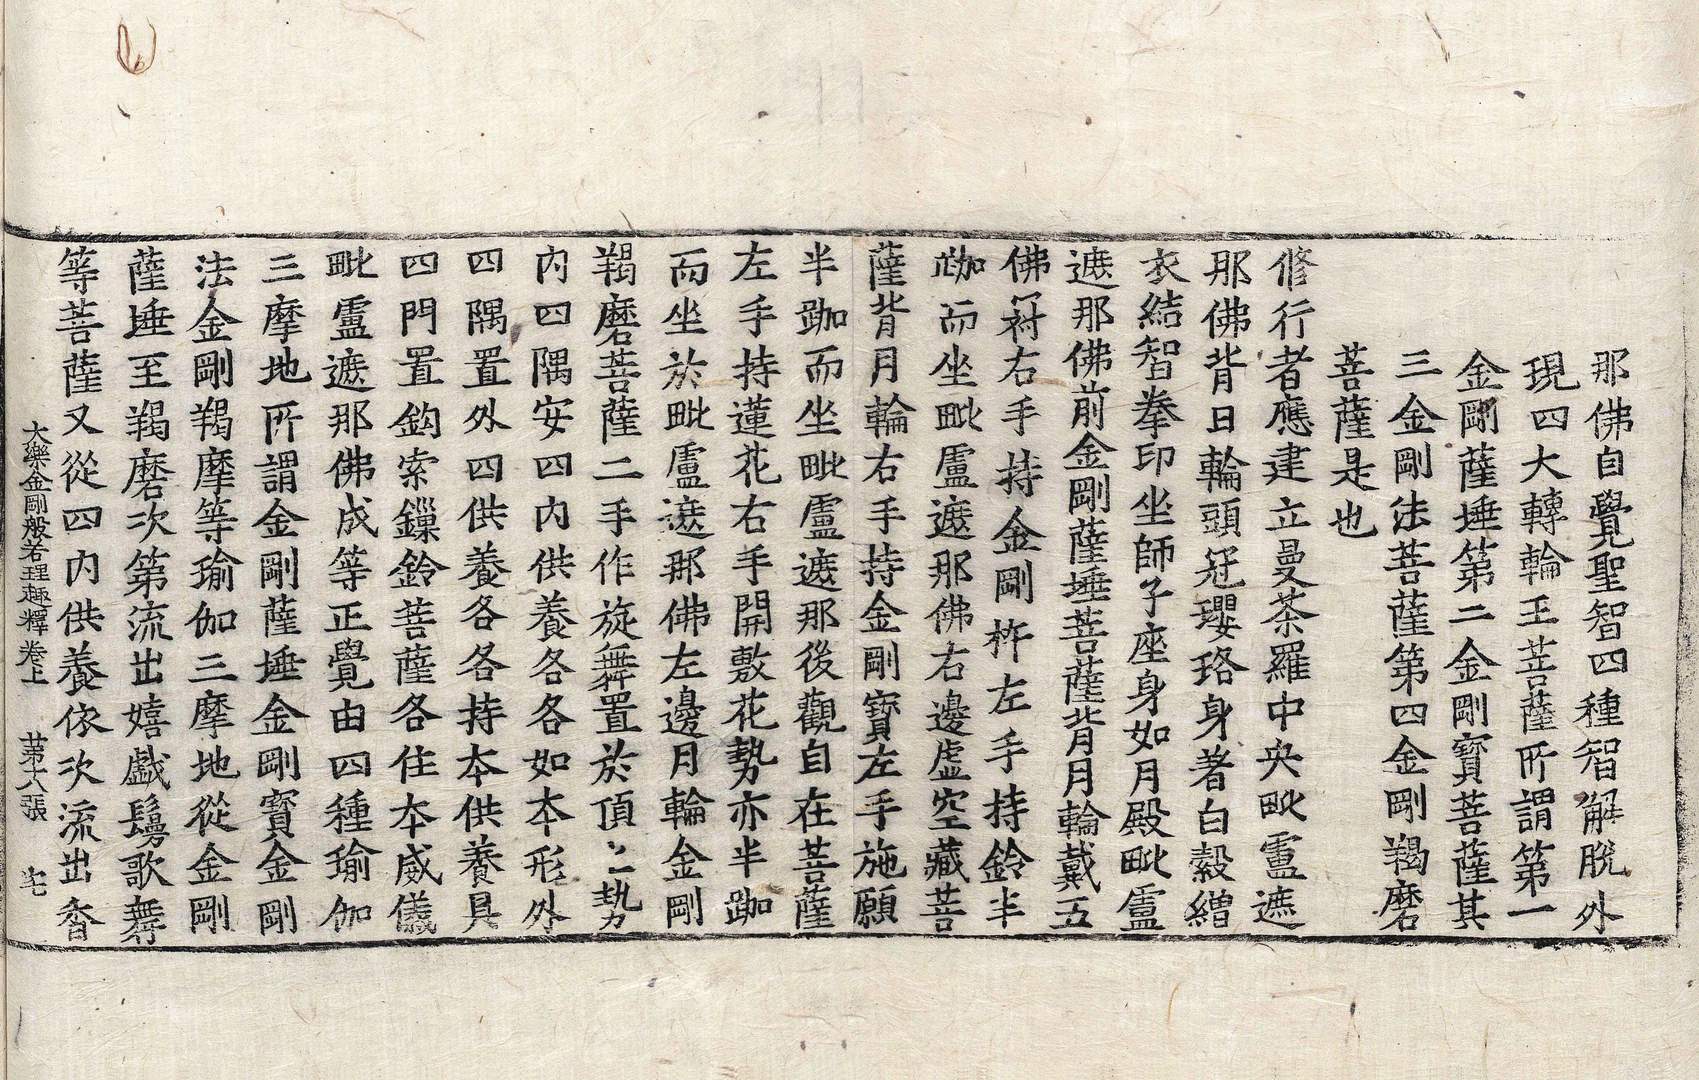 那佛自覺聖智四種智解脫外
現四大轉輪王菩薩所謂第一
金剛薩埵第二金剛寳菩薩其
三金剛法菩薩第四金剛羯磨
菩薩是也
修行者應建立曼荼羅中央毗盧遮
那佛背日輪頭冠瓔珞身著白縠繒
衣結智拳印坐師子座身如月殿毗盧
遮那佛前金剛薩埵菩薩背月輪戴五
佛冠右手持金剛杵左手持鈴半
跏而坐毗盧遮那佛右邊虛空藏菩
薩背月輪右手持金剛寶左手施願
半跏而坐毗盧遮那後觀自在菩薩
左手持蓮花右手開敷花勢亦半跏
而坐於毗盧遮那佛左邊月輪金剛
羯磨菩薩二手作旋舞置於頂上勢
內四隅安四內供養各各如本形外
四隅置外四供養各各持本供養具
四門置鈎索鏁鈴菩薩各住本威儀
毗盧遮那佛成等正覺由四種瑜伽
三摩地所謂金剛薩埵金剛寶金剛
法金剛羯摩等瑜伽三摩地從金剛
薩埵至羯磨次第流出嬉戲鬘歌舞
等菩薩又從四內供養依次流出香
大樂金剛般若理趣釋卷上 第六張 宅